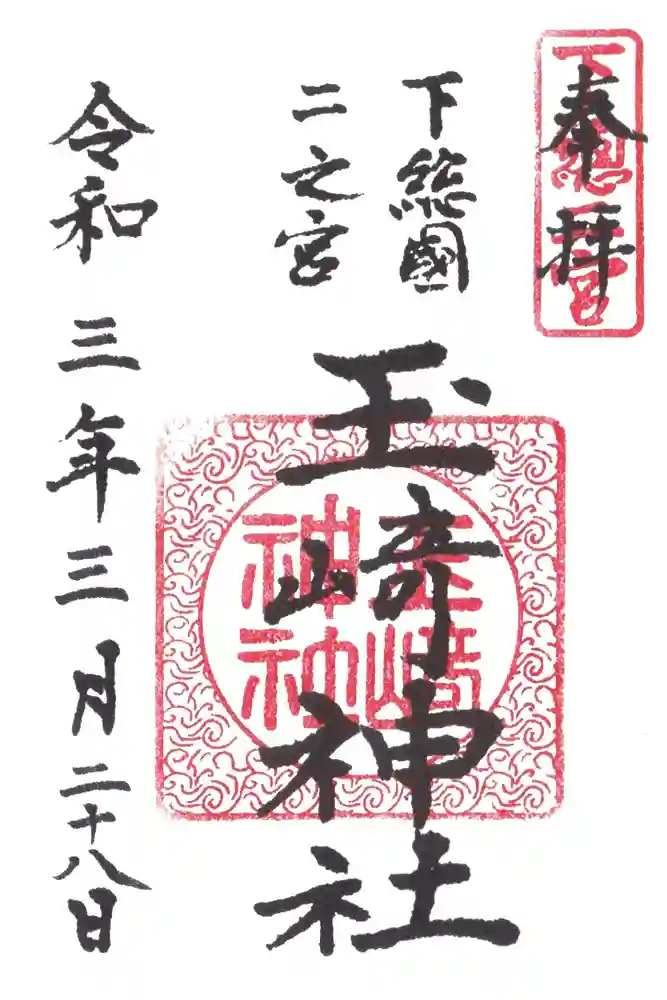 奉拝
下総國
二之宮
玉﨑神社
令和三年三月二十八日
下総二宮
玉﨑神社